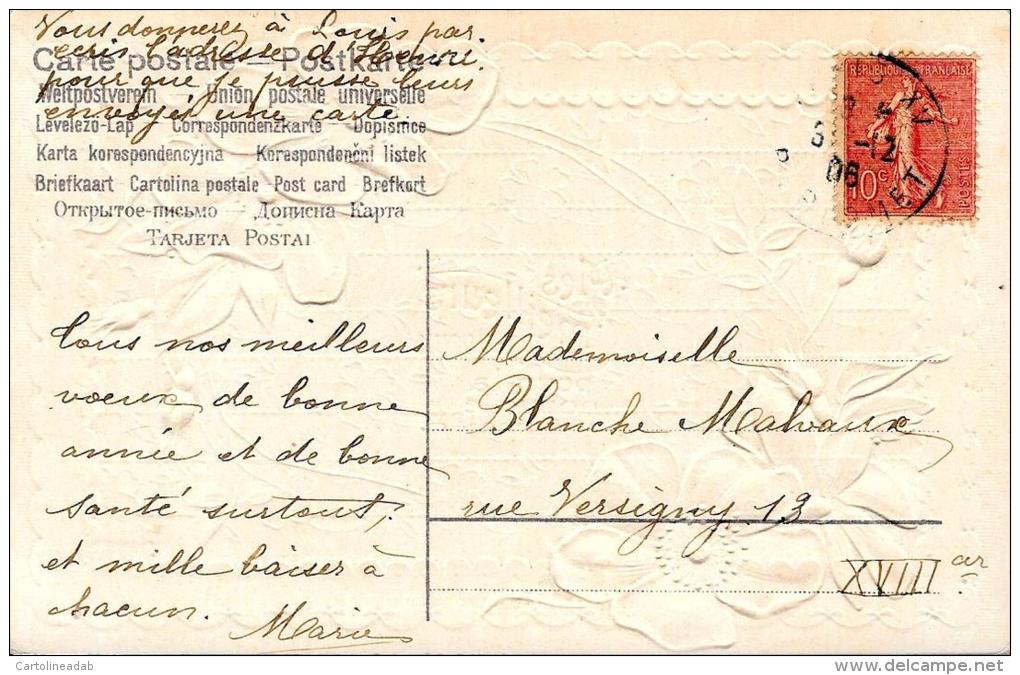 Vous donnerez à Louis par
ecris l'adresse d'Henri.
Carte postale — Postkarte
pour que je puisse leurs
Weltpostverein — Union postale universelle
envoyér une carte
Levelező-Lap — Correspondenzkarte — Dopisnice
Karta korespondencyjna — Korespondenční listek
Briefkaart Cartolina postale - Post card Brefkort
Открытое-письмо — Дописна Карта
TARJETA POSTAL
REPUBLIQUE FRANÇAISE
10c
POSTES
-12
06
Tous nos meilleurs
voeux de bonne
année et de bonne
santé surtout,
et mille baiser à
chacun.
Marie
Mademoiselle
Blanche Malvaux
rue Versigny 13
XVIII ar.
Cartolineadab
delcampe.net